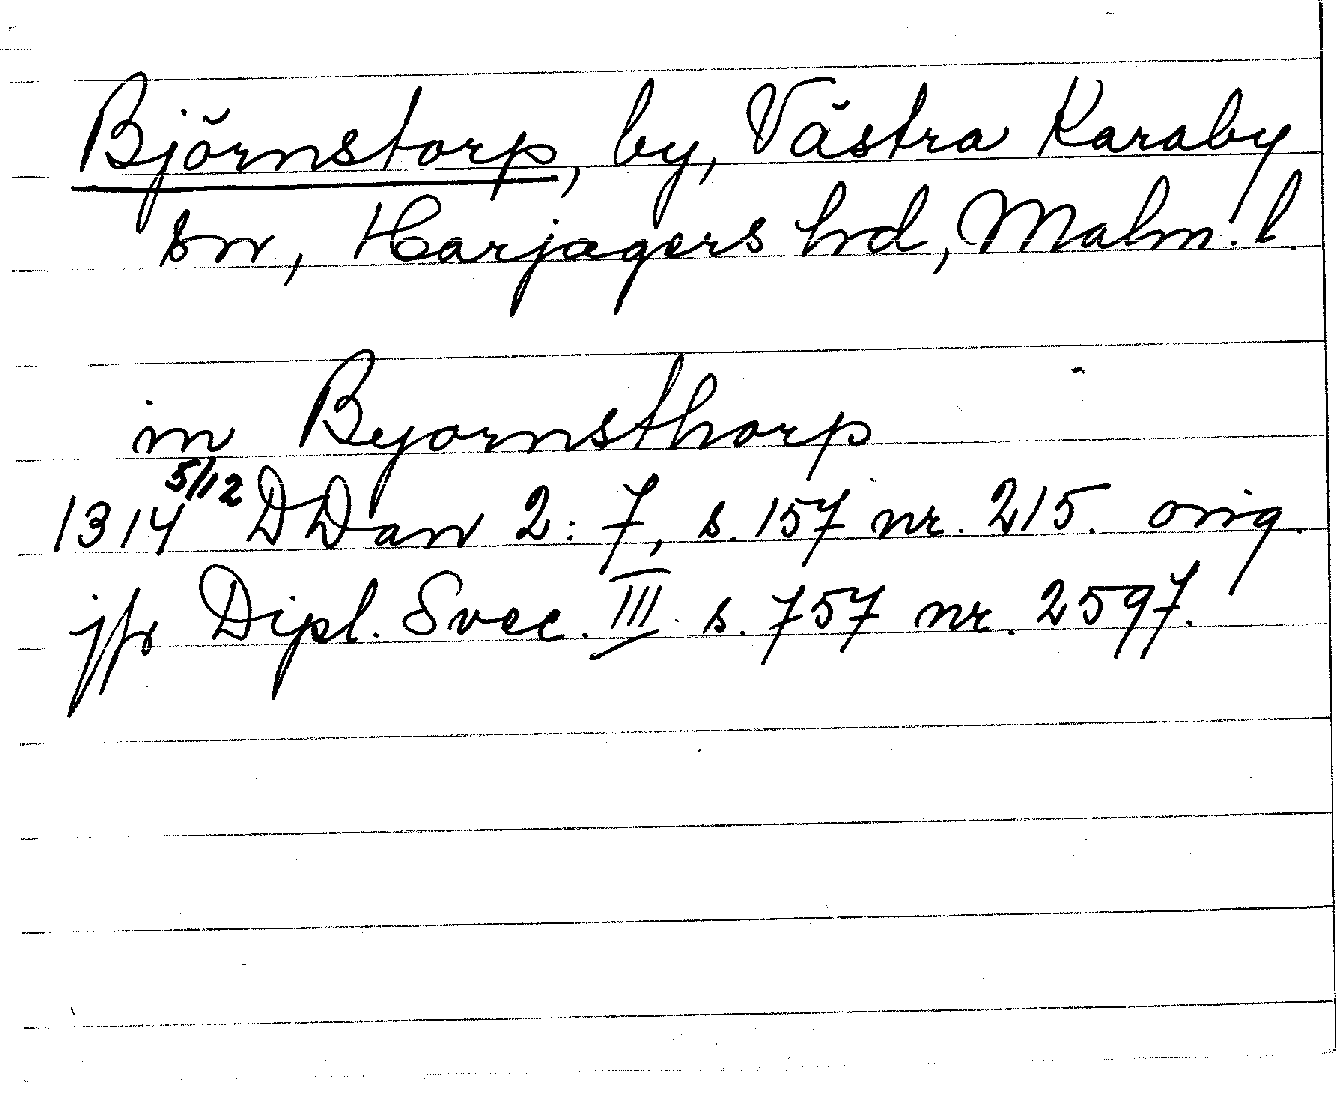 Björnstorp, by, Västra Karaby
sn, Harjagers hd, Malm. l.
in Byornsthorp
1314 5/12 DDan 2: 7, s. 157 nr. 215. orig.
jfr Dipl. Svec. III s. 757 nr. 2597.